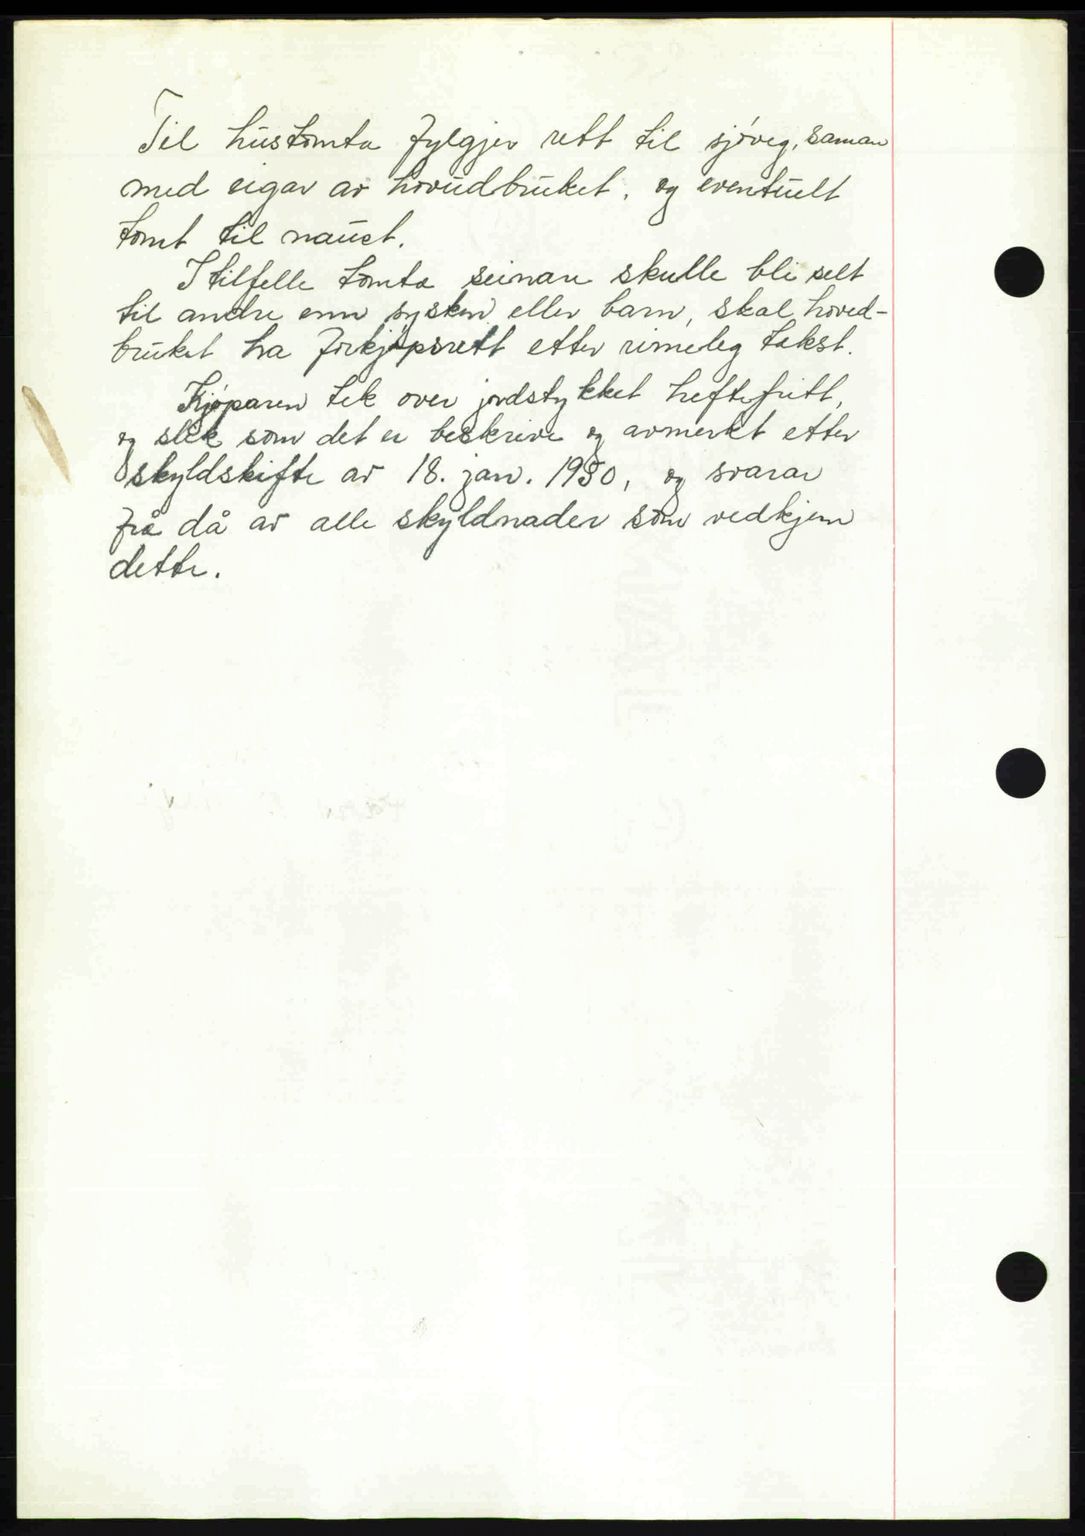 Til hústomta fylgjer rett til sjøveg, saman
med eigar av hovúdbrúket, og eventúelt
tomt til naúst.
I tilfelle tomta seinare skulle bli selt
til andre enn sysken eller barn, skal hoved-
brúket ha forkjøpsrett etter rimeleg takst.
Kjøparen tek over jordstykket heftefritt,
og slik som det er beskrive og avmerkt etter
skyldskifte av 18. jan. 1950, og svarar
frå då av alle skyldnader som vedkjem
dette.